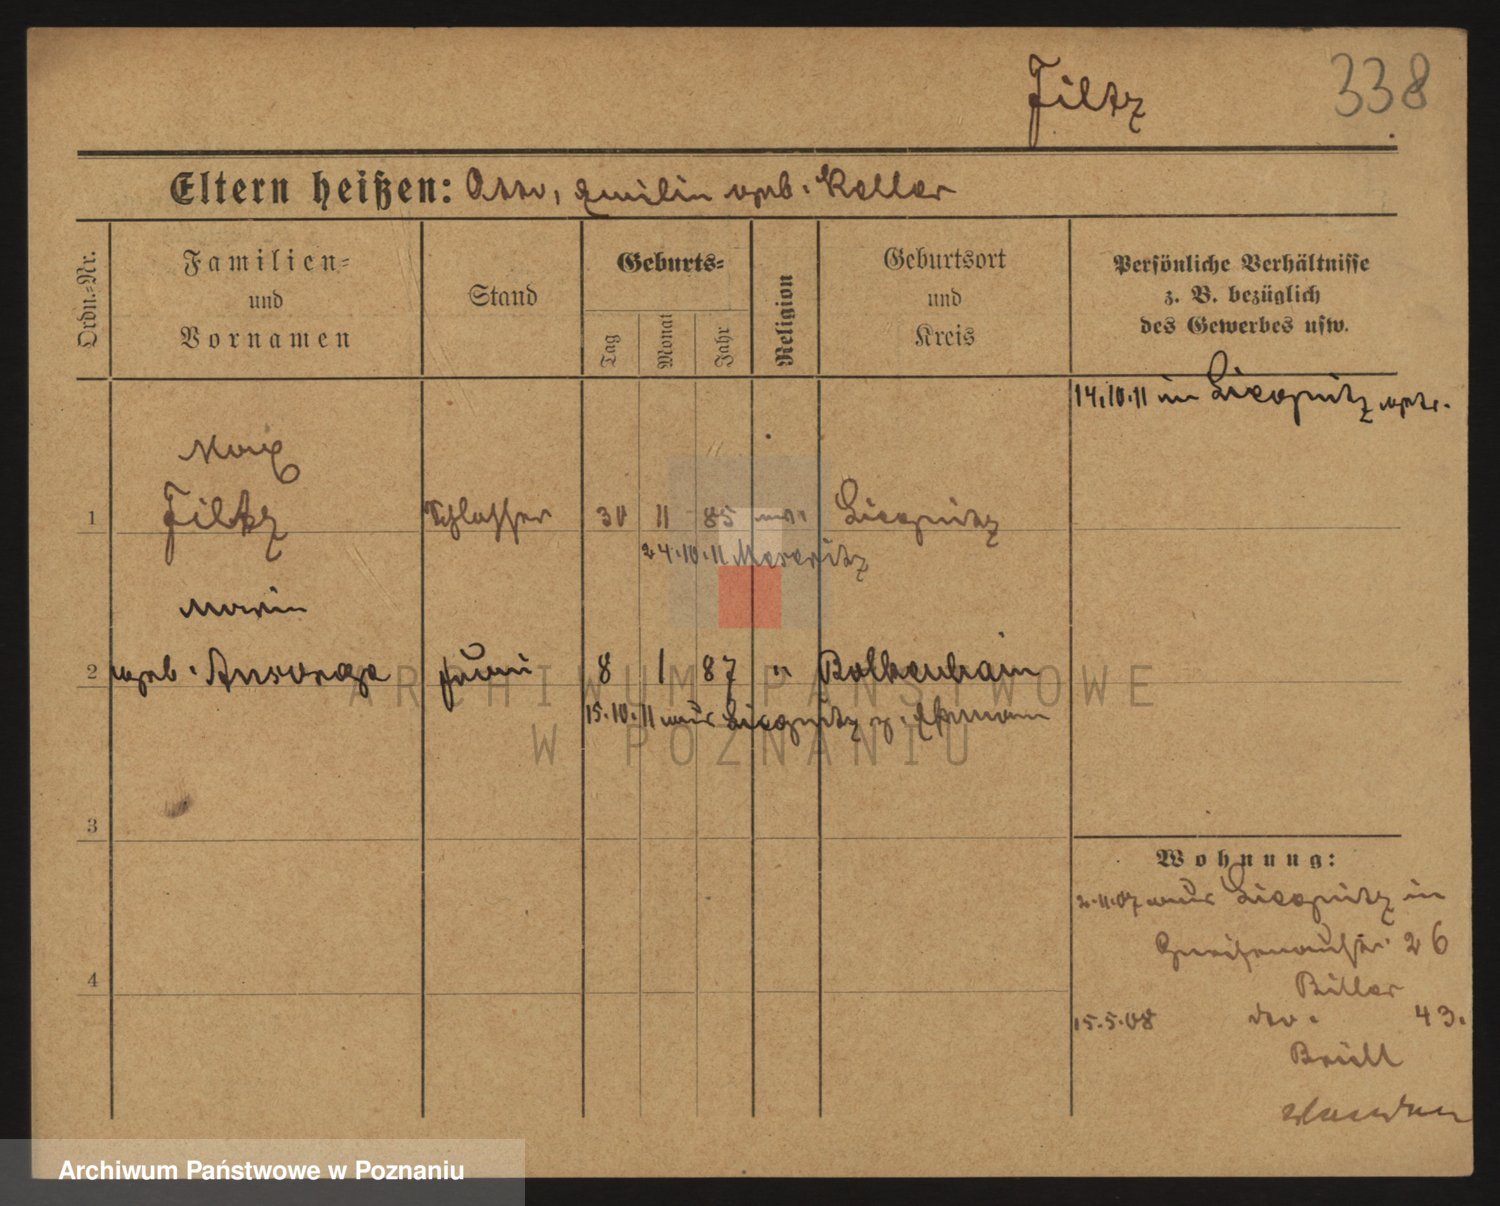 Filtz
338
Eltern heißen: Otto, Emilie geb. Keller
Ordn.-Nr.
Familien-
und
Vornamen
Stand
Geburts-
Tag
Monat
Jahr
Religion
Geburtsort
und
Kreis
Persönliche Verhältnisse
z. B. bezüglich
des Gewerbes usw.
14.10.11 in Liegnitz getr.
Max
1 Filtz Schlosser 30 11 85 Liegnitz
24.10.11 Meseritz
Marie
2 geb. Ansorge 8 1 87 " Bolkenhain
15.10.11 aus Liegnitz z. Ehemann
3
4
Wohnung:
2.11.07 aus Liegnitz in
Gneisenaustr. 26
Biller
15.5.08 dto. 43.
Brüll
ARCHIWUM PAŃSTWOWE
W POZNANIU
Archiwum Państwowe w Poznaniu